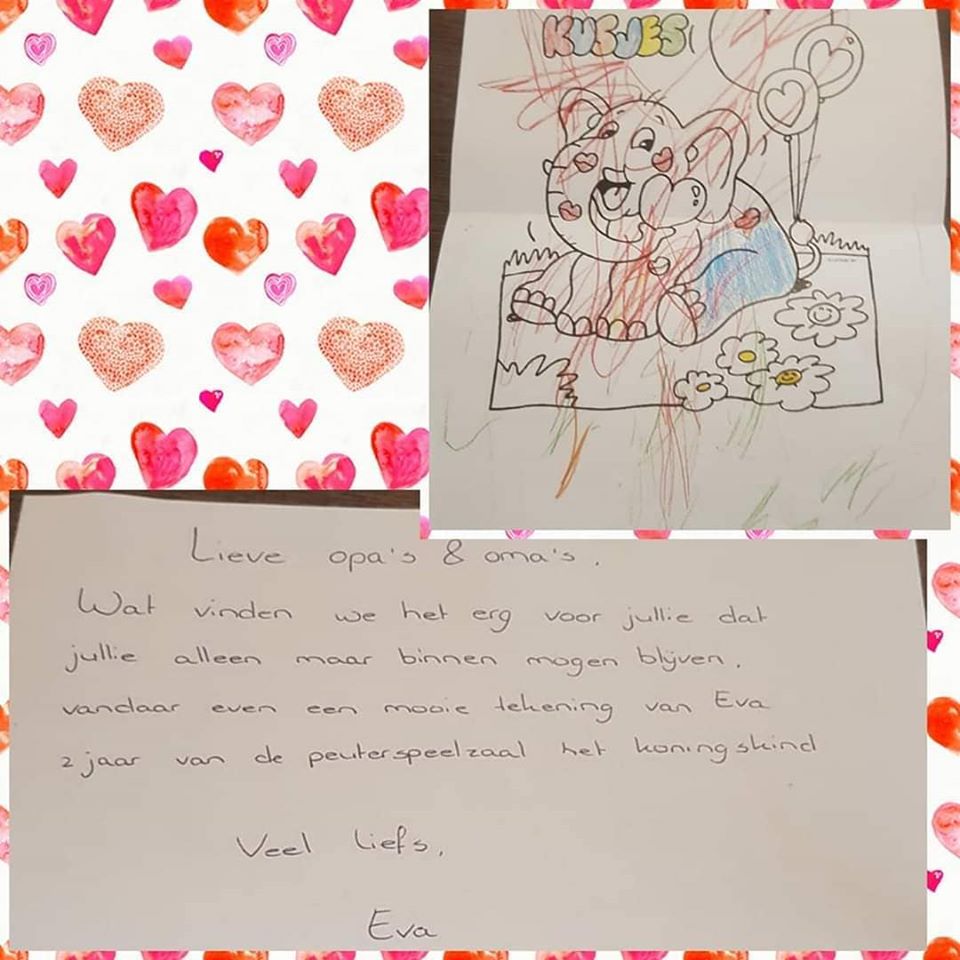 KUSJES
Lieve opa's & oma's,
Wat vinden we het erg voor jullie dat
jullie alleen maar binnen mogen blijven.
vandaar even een mooie tekening van Eva
2 jaar van de peuterspeelzaal het koningskind
Veel liefs,
Eva